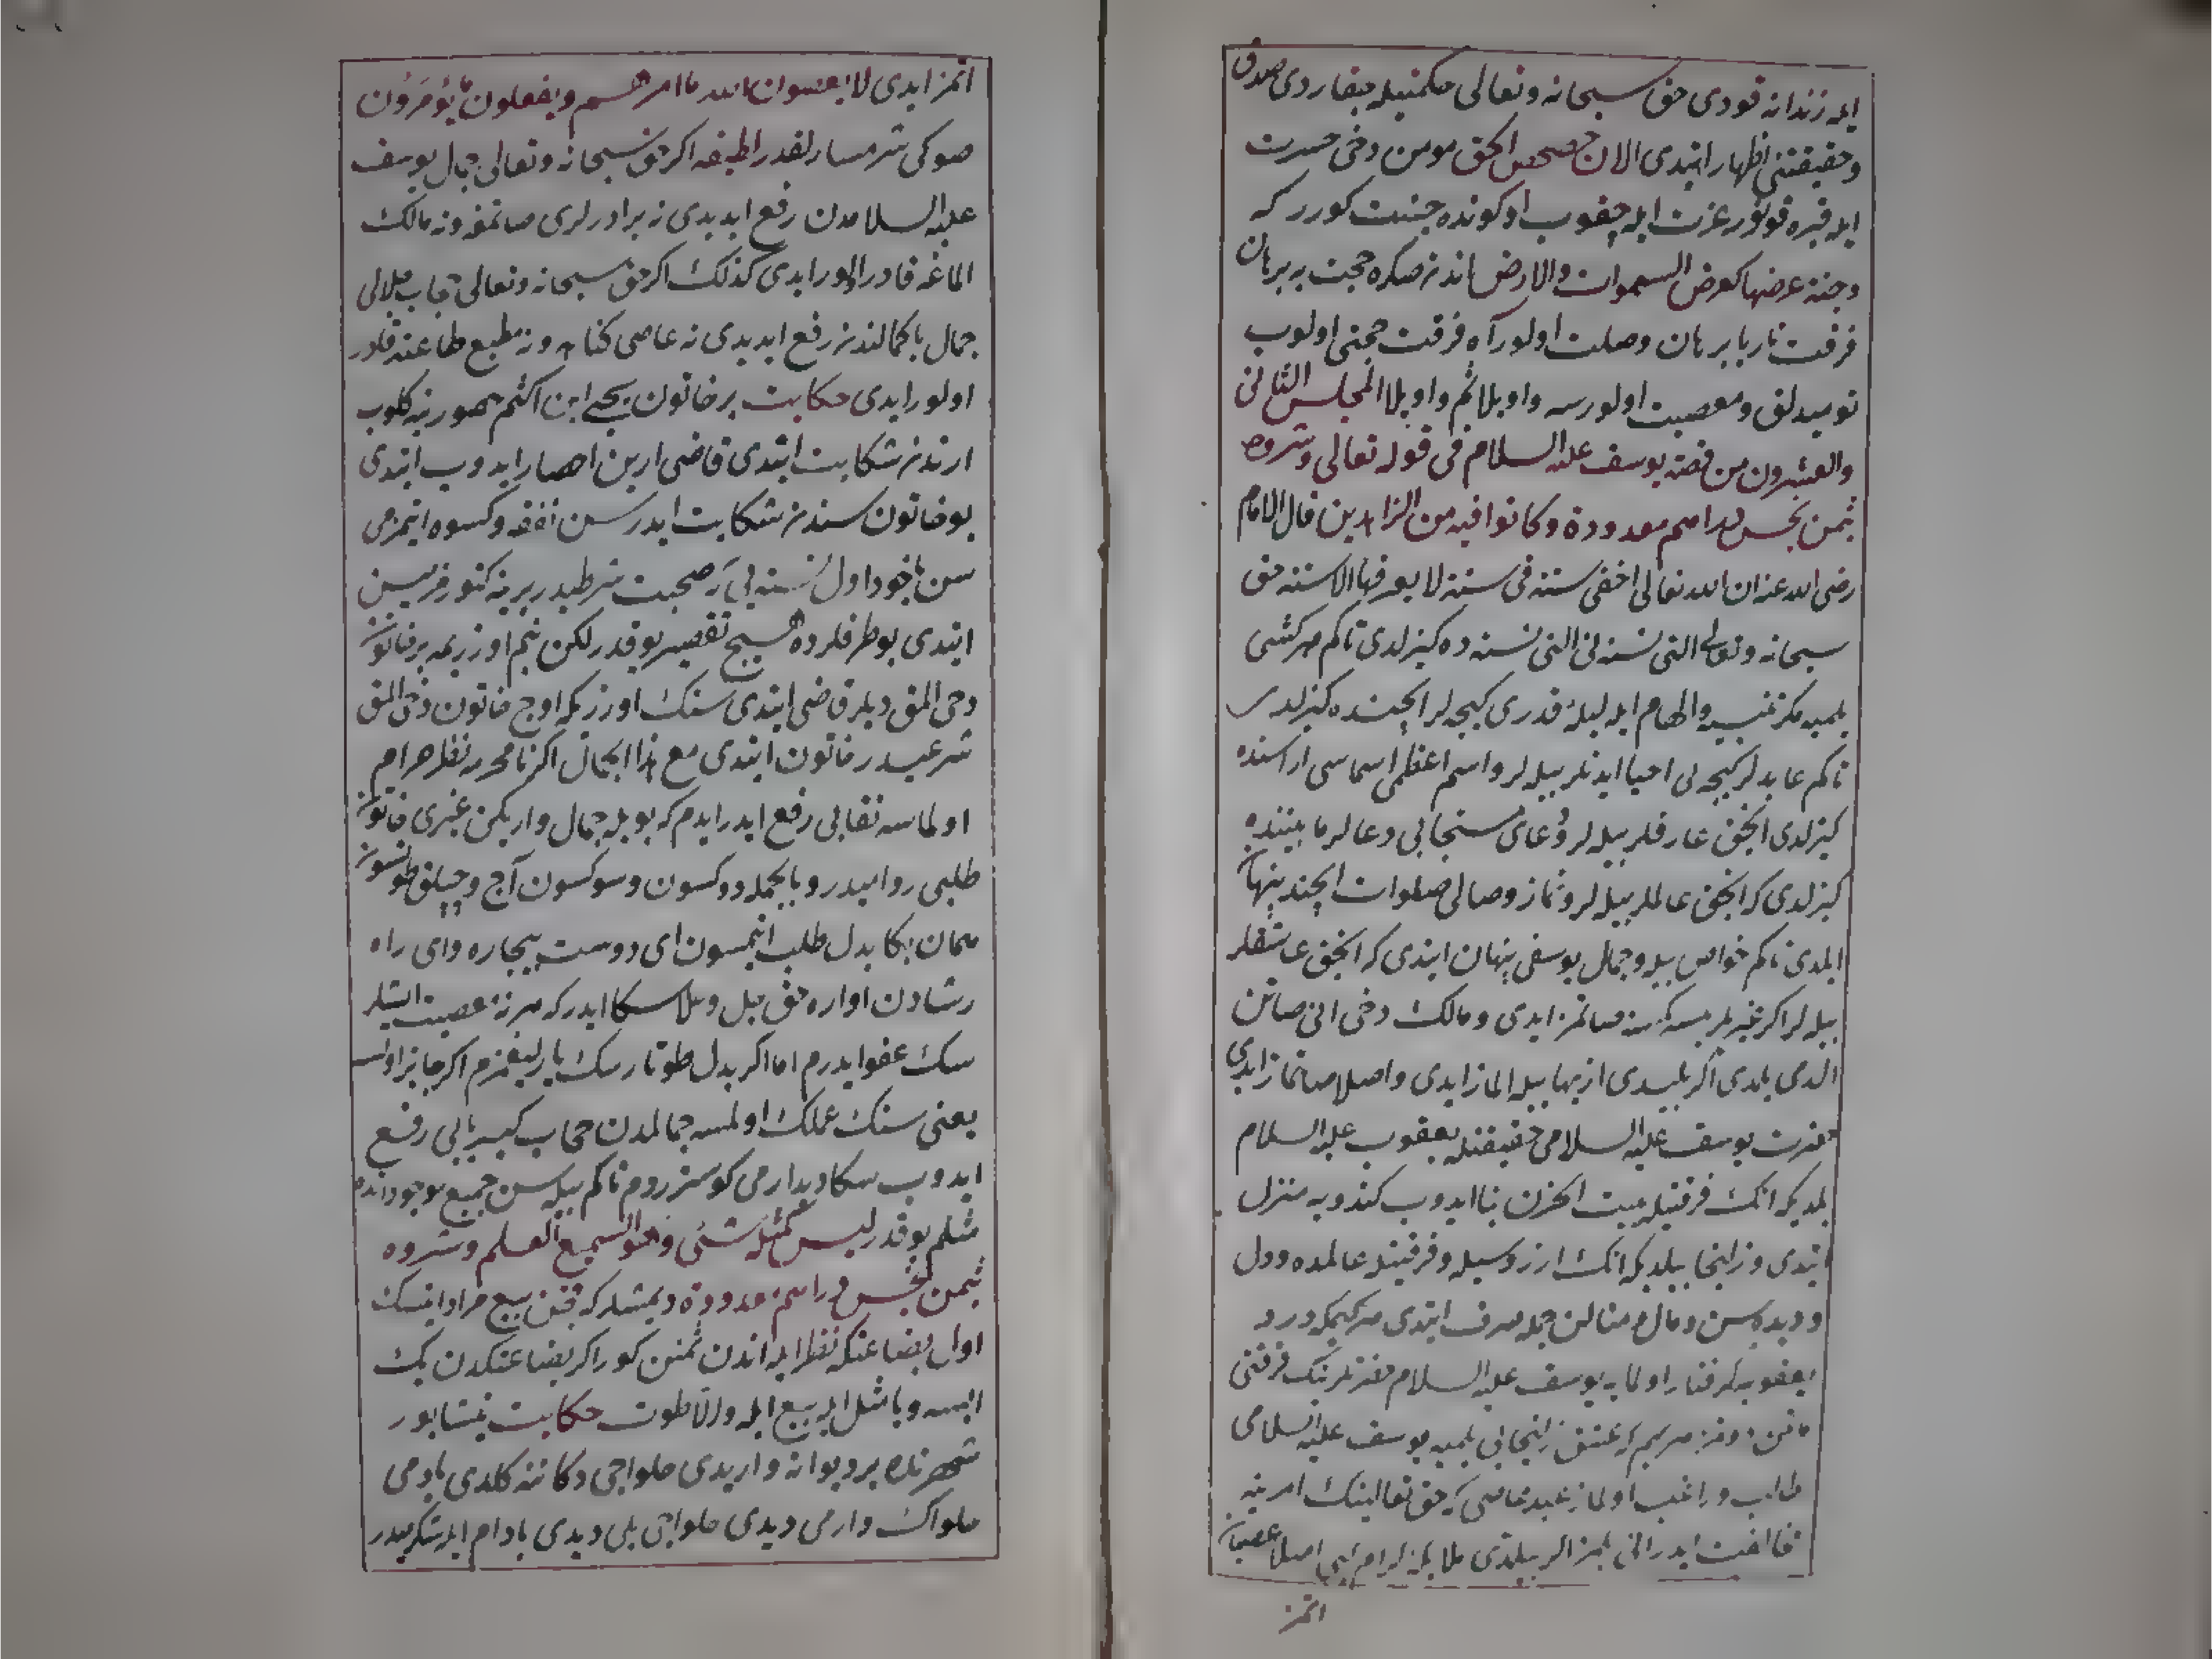 ایله زندانه قودی حق سبحانه وتعالی حکمتیله چقاردی صدق
وحقیقتنی اظهار ایتدی الان حصحص الحق مومن دخی حسرت
ایله قبره قونور عزت ایله چقوب اول کونده جنت کورر که
وجنة عرضها کعرض السموات والارض اندنصکره حجت بربرهان
فرقت نار یا برهان وصلت اولور آه فرقت حجتی اولوب
نومیدلق ومعصیت اولورسه واویلا ثم واویلا المجلس الثانی
والعشرون من قصة یوسف علیه السلام فی قوله تعالی وشروه
بثمن بخس دراهم معدودة وکانوا فیه من الزاهدین قال الامام
رضی الله عنه ان الله تعالی اخفی ستة فی ستة لا یعرفها الا ستة حق
سبحانه وتعالی التی نسنه‌نی التی نسنه‌ده کیزلدی تاکم هر کشی
بلمیه مکر تنبیه والهام ایله لیلۀ قدری کیجه‌لر ایچنده کیزلدی
تاکم عابدلر کیجه‌یی احیا ایدنلر بیله‌لر واسم اعظمی اسماسی اراسنده
کیزلدی انجق عارفلر بیله‌لر دعای مستجابی دعالر مابیننده
کیزلدی که انجق عالملر بیله‌لر ونماز وصالی صلوات ایچنده پنهان
ایلدی تاکم خواص بیله وجمال یوسفی پنهان ایتدی که انجق عاشقلر
بیله‌لر اکر غیریلر بیلسه کیمسه صاتمز ایدی ومالک دخی انی صاتن
الدی بلمدی اکر بلیدی از بها بیله الماز ایدی واصلا صاتماز ایدی
حضرت یوسف علیه السلامی حقیقتله یعقوب علیه السلام
بلدیکه انک فرقتیله بیت الحزن بنا ایدوب کندویه منزل
ایتدی وزلیخا بیلدیکه انک ارزوسیله وفرقتیله عالمده وول
ودیده‌سن ومال ومنالن جمله صرف ایتدی هر کیمکه درد
یعقوبه گرفتار اولمایه یوسف علیه السلام حضرتلرینک فرقتنی
طالب وراغب اولماز عبد عاصی که حق تعالینک امرینه
مخالفت ایدر انی بلمز اکر بیلیدی ملایکۀ کرام کبی اصلا عصیان
اتمز
اتمز ایدی لا یعصون الله ما امرهم ویفعلون ما یؤمرون
صوکی شرمسارلقدر لطیفه اکر حق سبحانه وتعالی جمال یوسف
علیه السلامدن رفع ایدیدی نه برادرلری صاتمغه ونه مالک
الماغه قادر اولور ایدی کذلک اکر حق سبحانه وتعالی حجاب جلالی
جمال باکمالندن رفع ایدیدی نه عاصی کناه ونه مطیع طاعته قادر
اولور ایدی حکایت بر خاتون یحیی ابن اکثم حضورینه کلوب
ارندن شکایت ایتدی قاضی ارین احضار ایدوب ایتدی
بو خاتون سندن شکایت ایدر سن نفقه وکسوه ایتمزمی
ایتدی بو طرفلرده هیچ تقصیر یوقدر لکن بنم اوزریمه بر خاتون
دخی المق دیلر قاضی ایتدی سنک اوزریکه اوج خاتون دخی المق
شرعیدر خاتون ایتدی مع هذا الجمال اکر نامحرمه نظر حرام
اولماسه نقابی رفع ایدر ایدم که بویله جمال واریکن غیری خاتون
طلبی روامیدر وبالجمله دوکسون وسوکسون آج وچپلق طوتسون
همان بکا بدل طلب ایتمسون ای دوست بیچاره وای راه
رشادن اواره حق جل وعلا سکا ایدر که هر نه معصیت ایشلر
سک عفو ایدرم اما اکر بدل طوتارسک یارلیغمزم اکر جائز اولسه
یعنی سنک عملک اولمسه جمالمدن حجاب کبریایی رفع
ایدوب سکا دیدارمی کوستررودم تاکم بیله‌سن جمیع موجوداتده
مثلم یوقدر لیس کمثله شئی وهو السمیع العلیم وشروه
بثمن بخس دراهم معدودة دیمشلر که قچن بیع مراد ایتسک
اول بضاعتکه نظر ایله اندن ثمنن کور اکر بضاعتکدن یک
ایسه وباشل ایله بیع ایله والا طوت حکایت نیشابور
شهرنده بر دیوانه واریدی حلواجی دکاننه کلدی بادمی
حلواک وارمی دیدی حلواجی بلی دیدی بادام ایله شکرمیدر